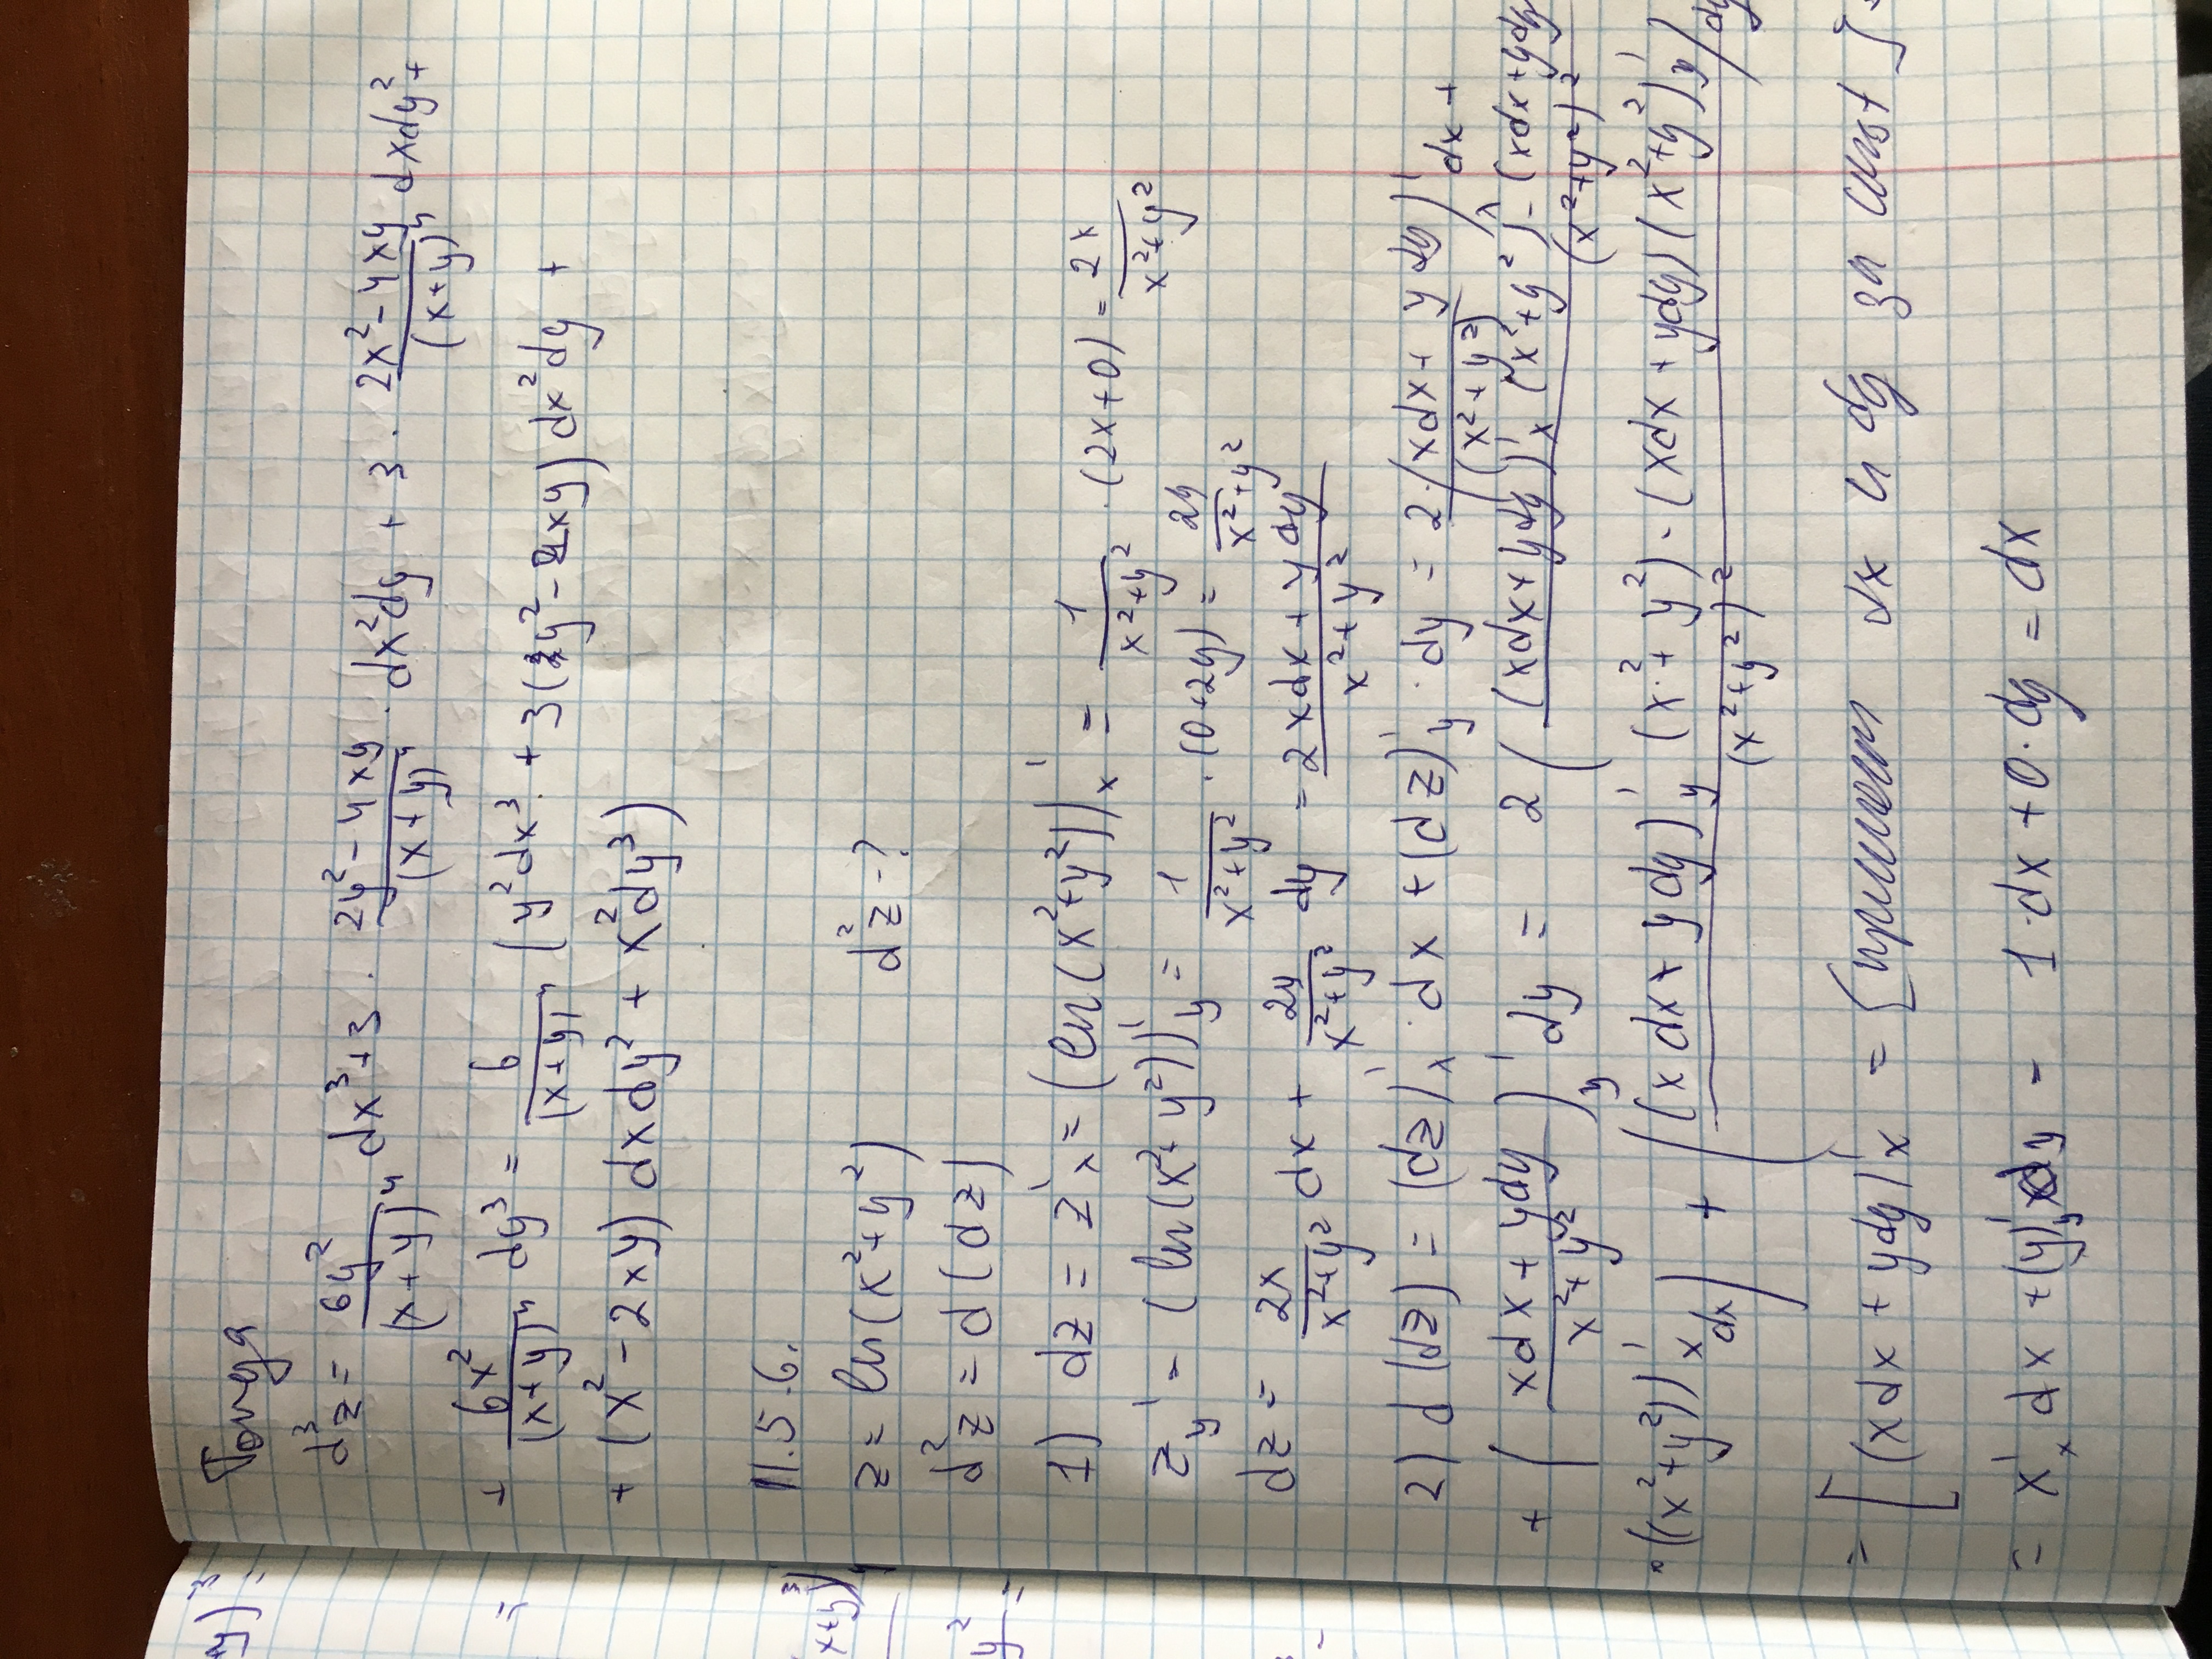 Тогда
d³z = 6y²/(x+y)⁴ dx³ + 3 · (2y² - 4xy)/(x+y)⁴ · dx²dy + 3 · (2x² - 4xy)/(x+y)⁴ dxdy² +
+ 6x²/(x+y)⁴ dy³ = 6/(x+y)⁴ (y²dx³ + 3(y² - 2xy) dx²dy +
+ (x² - 2xy) dxdy² + x²dy³)
11.5.6.
z = ln(x²+y²) d²z - ?
d²z = d(dz)
1) dz = z'x = (ln(x²+y²))'x = 1/(x²+y²) · (2x+0) = 2x/(x²+y²)
z'y = (ln(x²+y²))'y = 1/(x²+y²) · (0+2y) = 2y/(x²+y²)
dz = 2x/(x²+y²) dx + 2y/(x²+y²) dy = (2xdx + ydy)/(x²+y²)
2) d(dz) = (dz)'x · dx + (dz)'y · dy = 2·((xdx + ydy)/(x²+y²))'x dx +
+ ((xdx + ydy)/(x²+y²))'y dy = 2 ((xdx+ydy)'x (x²+y²) - (xdx+ydy)/(x²+y²)²
· ((x²+y²))'x dx) + ((xdx + ydy)'y (x²+y²) - (xdx+ydy)(x²+y²)'y/(x²+y²)²) dy
= [(xdx + ydy)'x = [принимаем dx и dy за const] =
= x'x dx + (y)'y dy = 1·dx + 0·dy = dx